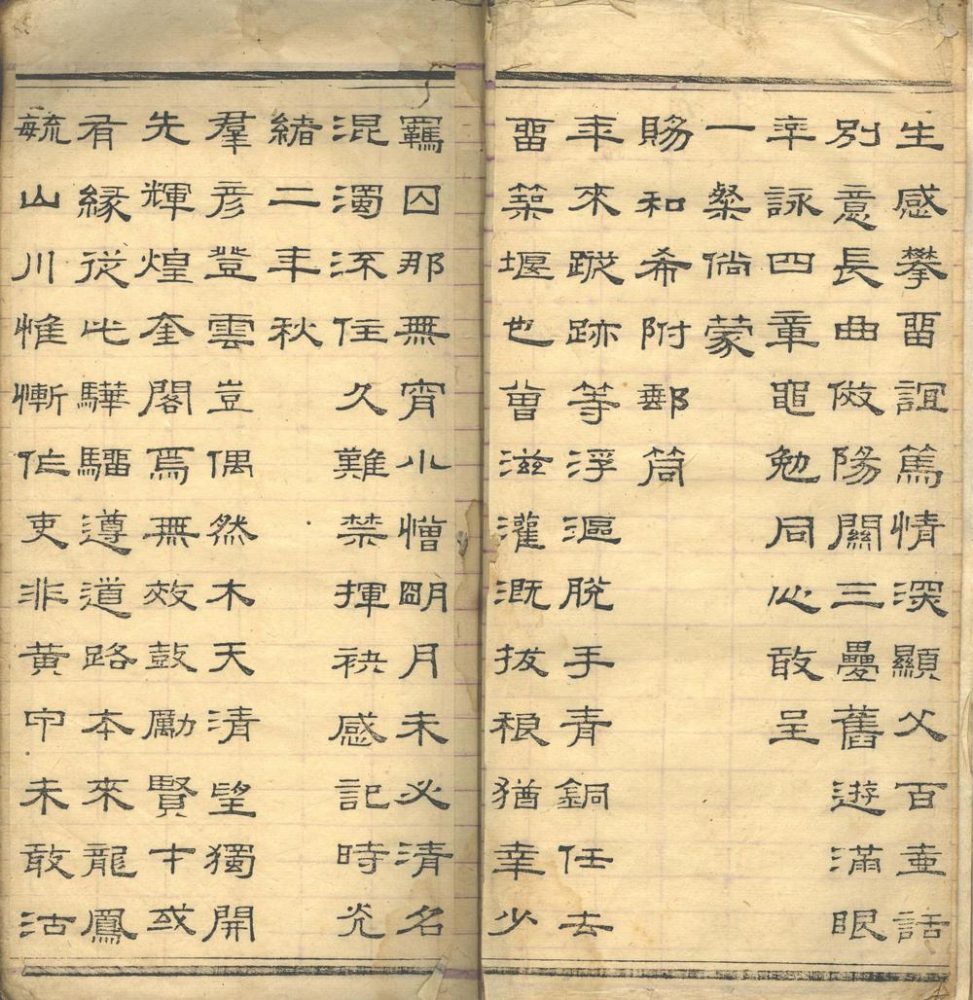 生感攀畱誼篤情深顯父百壺話
別意長曲倣陽關三疊舊遊滿眼
卒詠四章黽勉同心敢呈
一粲倘蒙
賜和希附郵筒
年來蹤跡等浮漚脫手青銅任去
畱築堰也曾滋灌溉拔根猶幸少
羈囚那無宵小憎明月未必清名
混濁流住久難禁揮袂感記時光
緒二年秋
羣彥登雲豈偶然木天清望獨開
先輝煌奎閣焉無效鼓勵賢才或
有緣從此驊騮遵道路本來龍鳳
毓山川惟慚作吏非黃中未敢沽